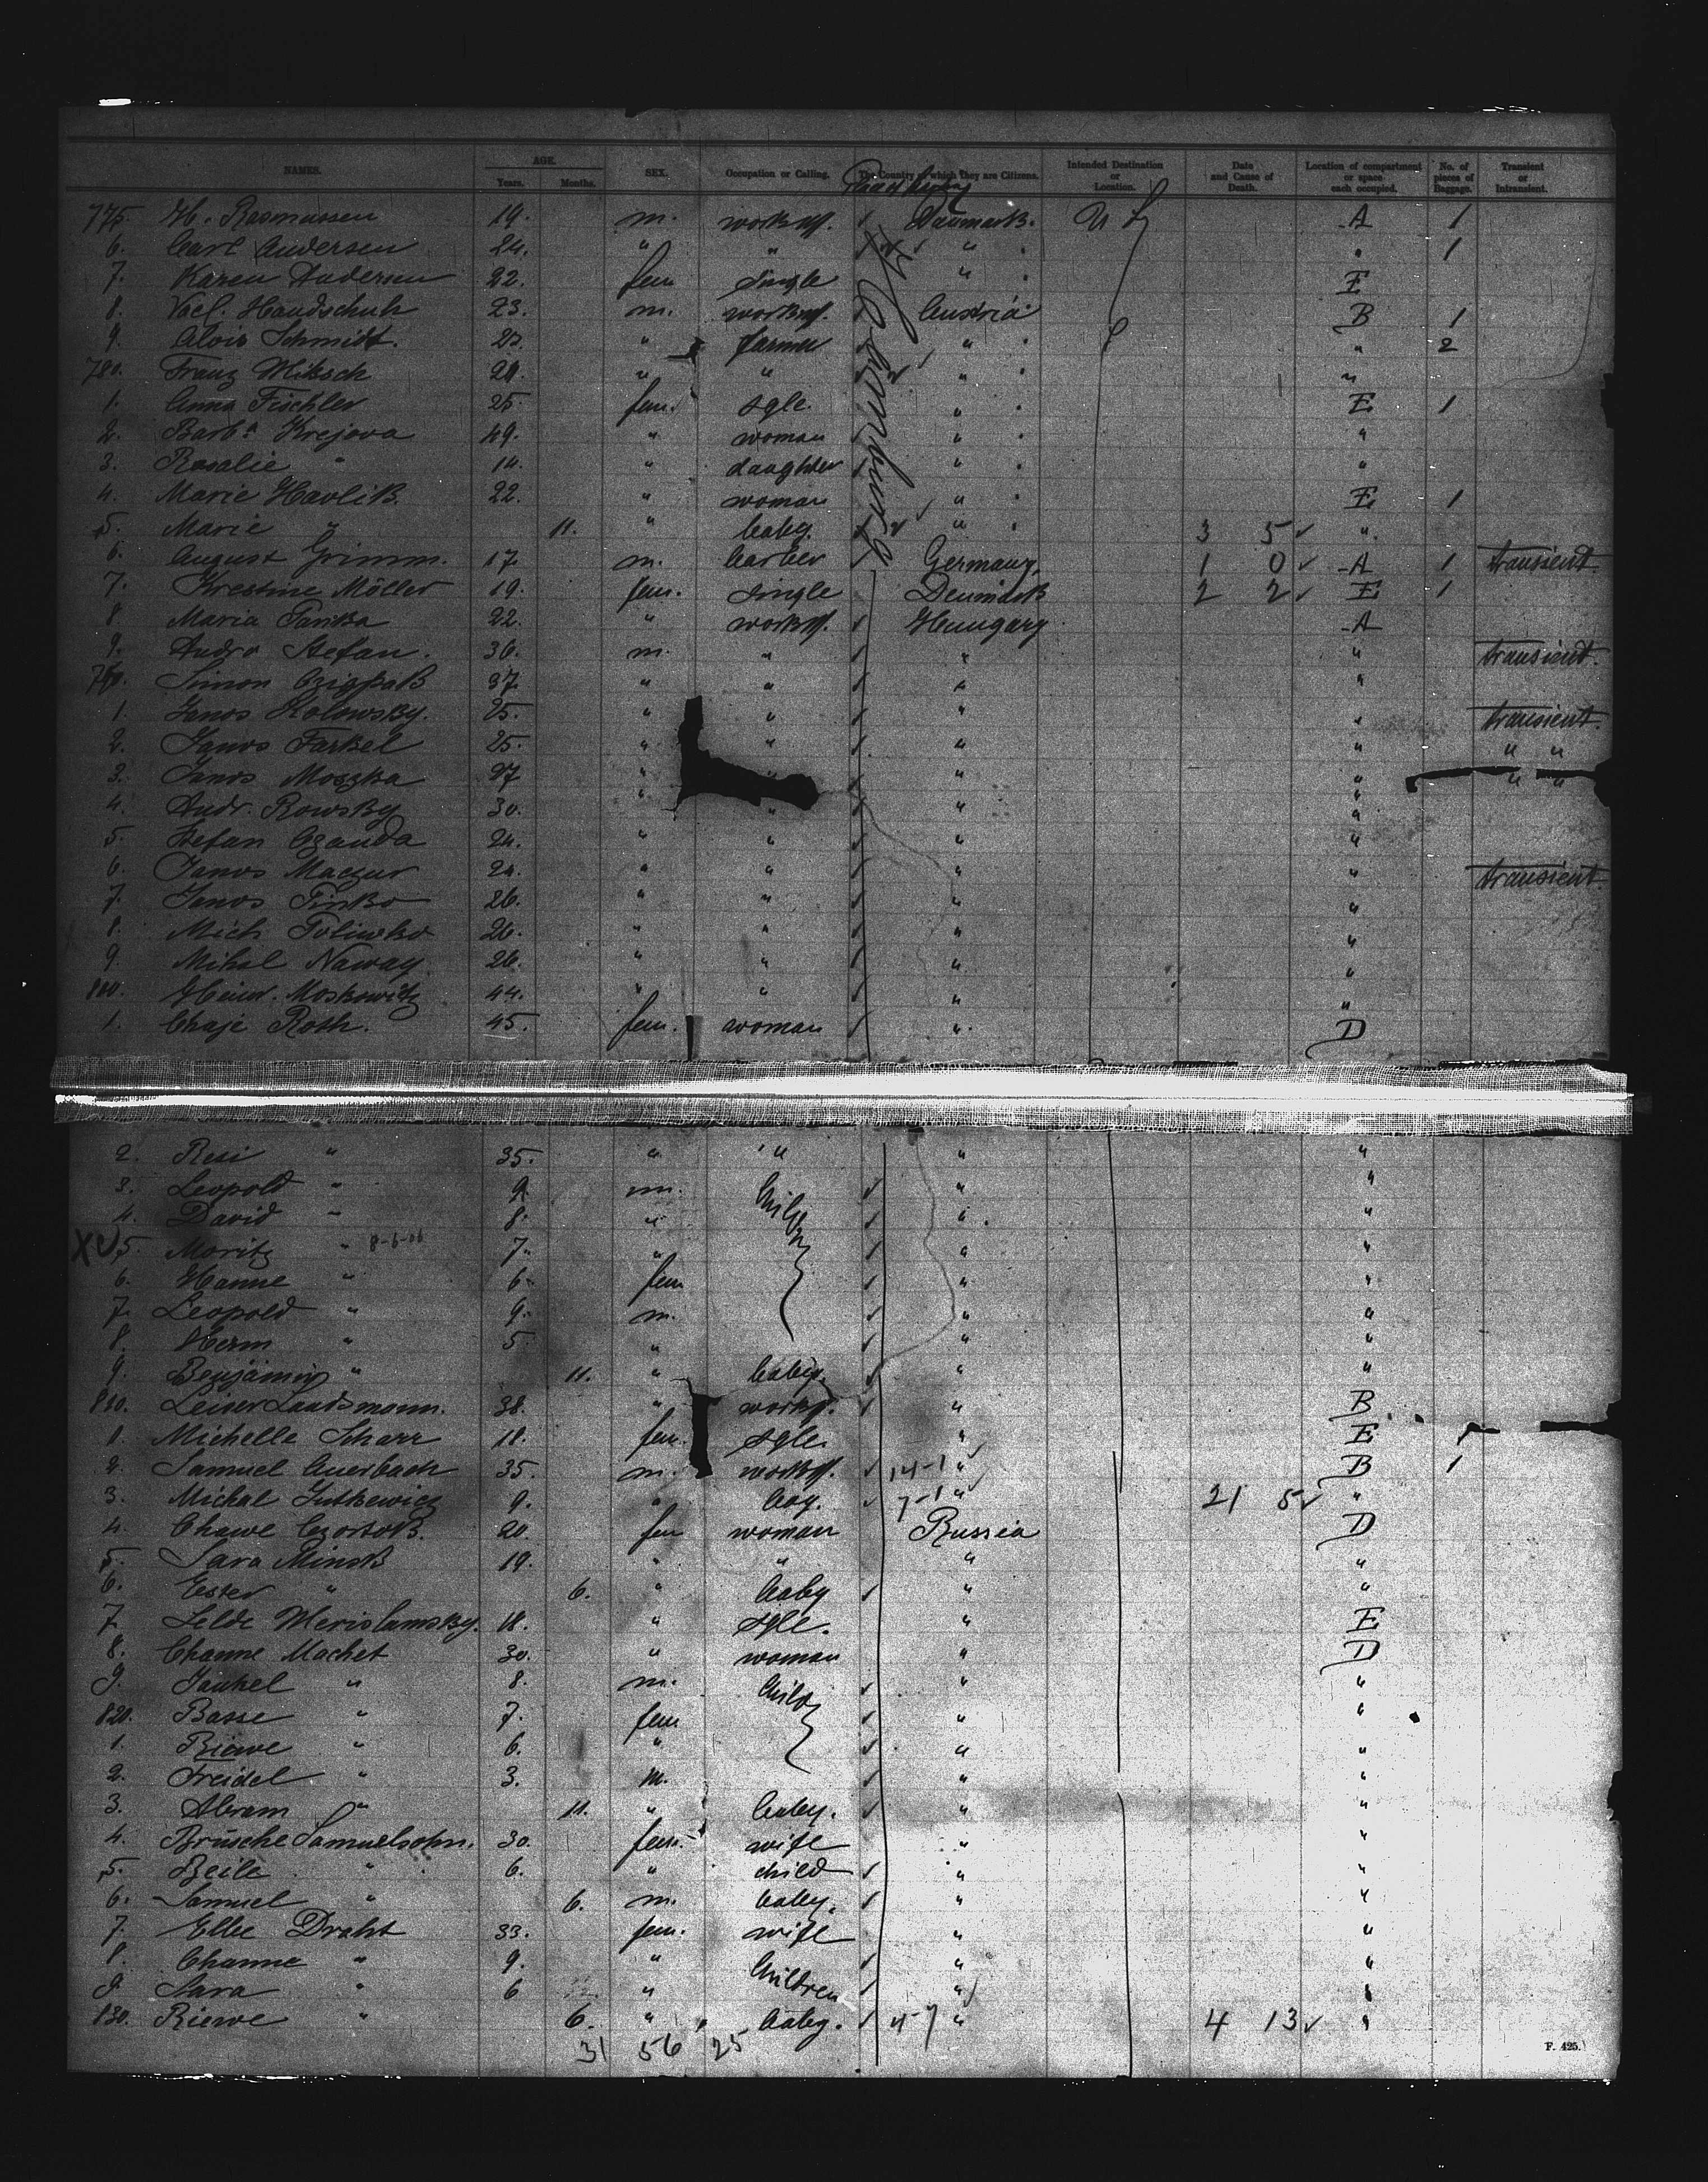 NAMES. AGE. Years. Months. SEX. Occupation or Calling. The Country of which they are Citizens. Intended Destination or Location. Date and Cause of Death. Location of compartment or space each occupied. No. of pieces of Baggage. Transient or Intransient.
775. H. Rasmussen 19. m. Danmark. A 1
6. Carl Andersen 24. " " " " 1
7. Karen Andersen 22. fem single " E
8. Vacl. Handschuh 23. m. Austria B 1
9. Alois Schmidt. " farmer " " 2
780. Franz " " " "
1. Anna Fischler 25. fem. sgle. " E 1
2. Barbª Krejova 49. " woman " "
3. Rosalie " 14. " daughter " "
4. Marie Havlik. 22. " woman " E 1
5. Marie " 11. " baby. " 3 5 "
6. August Grimm. 17. m. barber Germany. 1 0 A 1 transient.
7. Krestine Möller 19. fem. single Denmark 2 2 E 1
8 Maria 22. " Hungary A
9. Andro Stefan. 36. m. " " " transient.
Simon 37 " " " "
1. Janos Kolowsky. 25. " " " " transient.
2. Janos Farkel 25. " " " " " "
3. Janos Moszka " " " " " "
4. Andr. Rowsky 30. " " " "
5. Stefan Czanda 24. " " " "
6. Janos Maczur 24. " " " " transient.
7. Janos Tinko 26. " " " "
8. Mich 26. " " " "
9. Mihal Naway. 26. " " " "
800. Moskowitz 44. " " " "
1. Chaje Roth. 45. fem. woman " D
2. Resi " 35. " " " "
3. Leopold " 9 m. " "
4. David " 8. " " "
5. Moritz " 8-6-06 7. " " "
6. Hanne " 6. fem " "
7. Leopold " 9. m. " "
8. Herm " 5. " " "
9. Benjamin " 11. " baby. " "
810. Leiser Landsmann. 38. " " B
1. Michelle Scharr 18. fem. sgle. " E 1
2. Samuel Auerbach 35. m. 14-1 " B 1
3. Michal Gutkewicz 9. " boy. 7-1 " 21 5 "
4. Chawe 20. fem woman Russia D
5. Sara Minsk 19. " " " "
6. Ester " 6. " baby " "
7 18. " sgle. " E
8. Channe Machet 30. " woman " D
9. Jankel " 8. m. " "
820. Basse " 7. fem " "
1. " 6. " " "
2. Freidel " 3. m. " "
3. Abram " 11. " baby. " "
4. Brusche Samuelsohn. 30. fem. wife " "
5. Beile " 6. " child " "
6. Samuel " 6. m. baby. " "
7. Elbe Draht 33. fem. wife " "
8. Channe " 9. " Children " "
9 Sara " 6 " " "
830. Riewe " 6. " baby. " 4 13 "
31 56 25
F. 425.